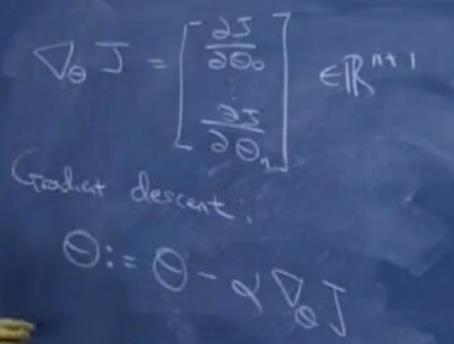 ∇_θ J = [∂J/∂θ₀ ⋮ ∂J/∂θₙ] ∈ ℝⁿ⁺¹
Gradient descent:
θ := θ - α ∇_θ J